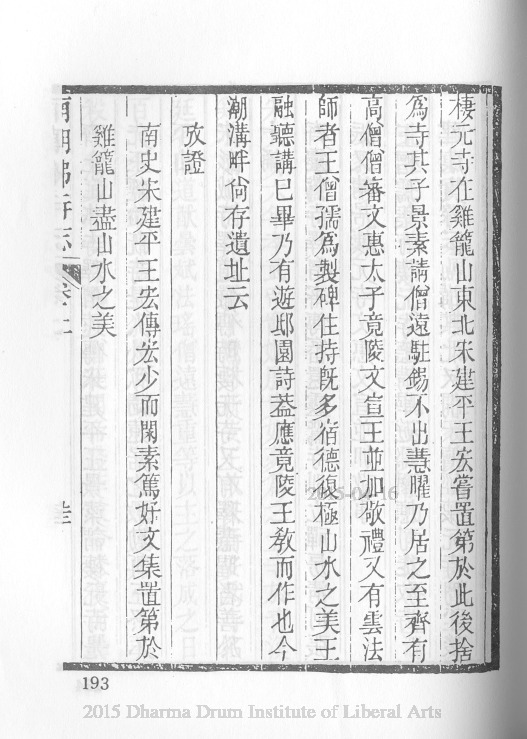 棲元寺在雞籠山東北宋建平王宏嘗置第於此後捨
爲寺其子景素請僧遠駐錫不出慧曜乃居之至齊有
高僧僧審文惠太子竟陵文宣王並加敬禮又有雲法
師者王僧孺爲製碑住持旣多宿德復極山水之美王
融聽講巳畢乃有遊邸園詩葢應竟陵王敎而作也今
潮溝畔尙存遺址云
攷證
南史宋建平王宏傳宏少而閑素篤好文集置第於
雞籠山盡山水之美
南朝佛寺志 卷上
2015-04-16
193
2015 Dharma Drum Institute of Liberal Arts